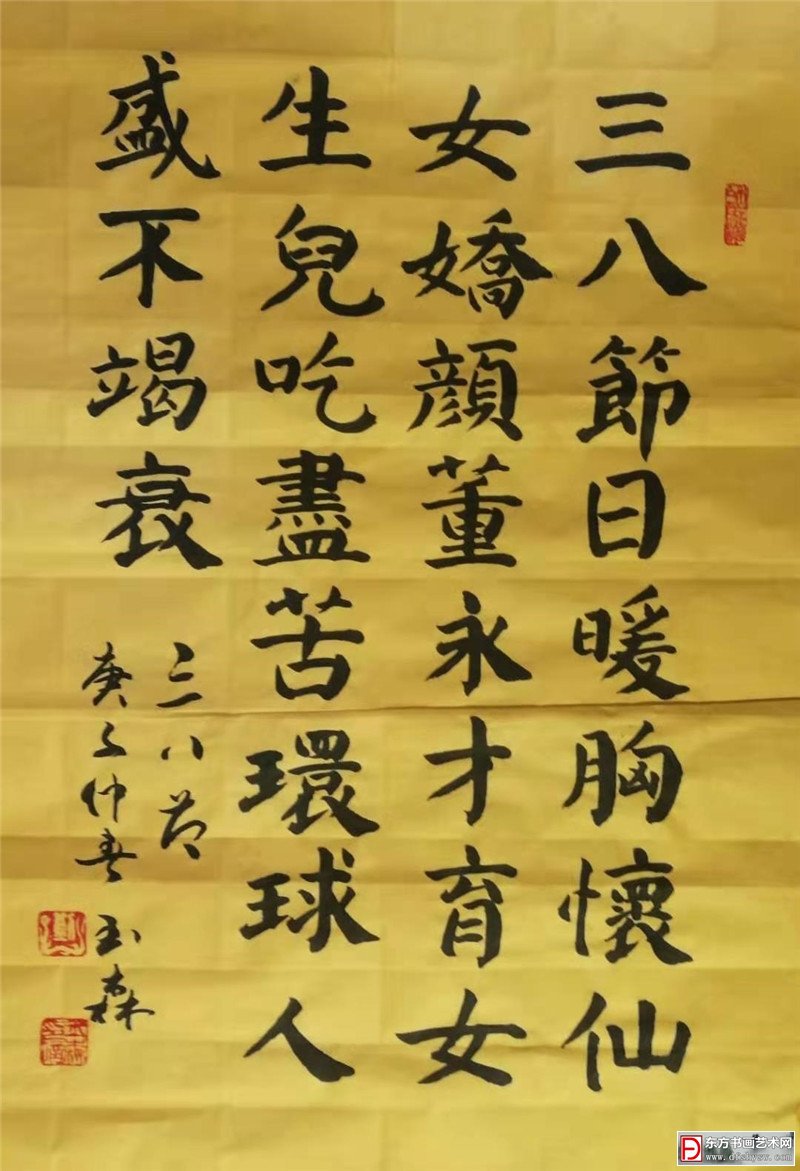 三八節日暖胸懷仙
女嬌顏董永才育女
生兒吃盡苦環球人
盛不竭衰
三八节
庚子仲春 玉森
东方书画艺术网